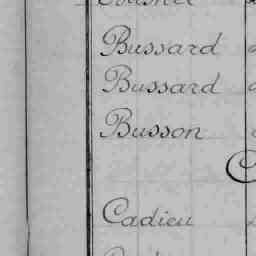 Bussard
Bussard
Busson
C
Cadieu